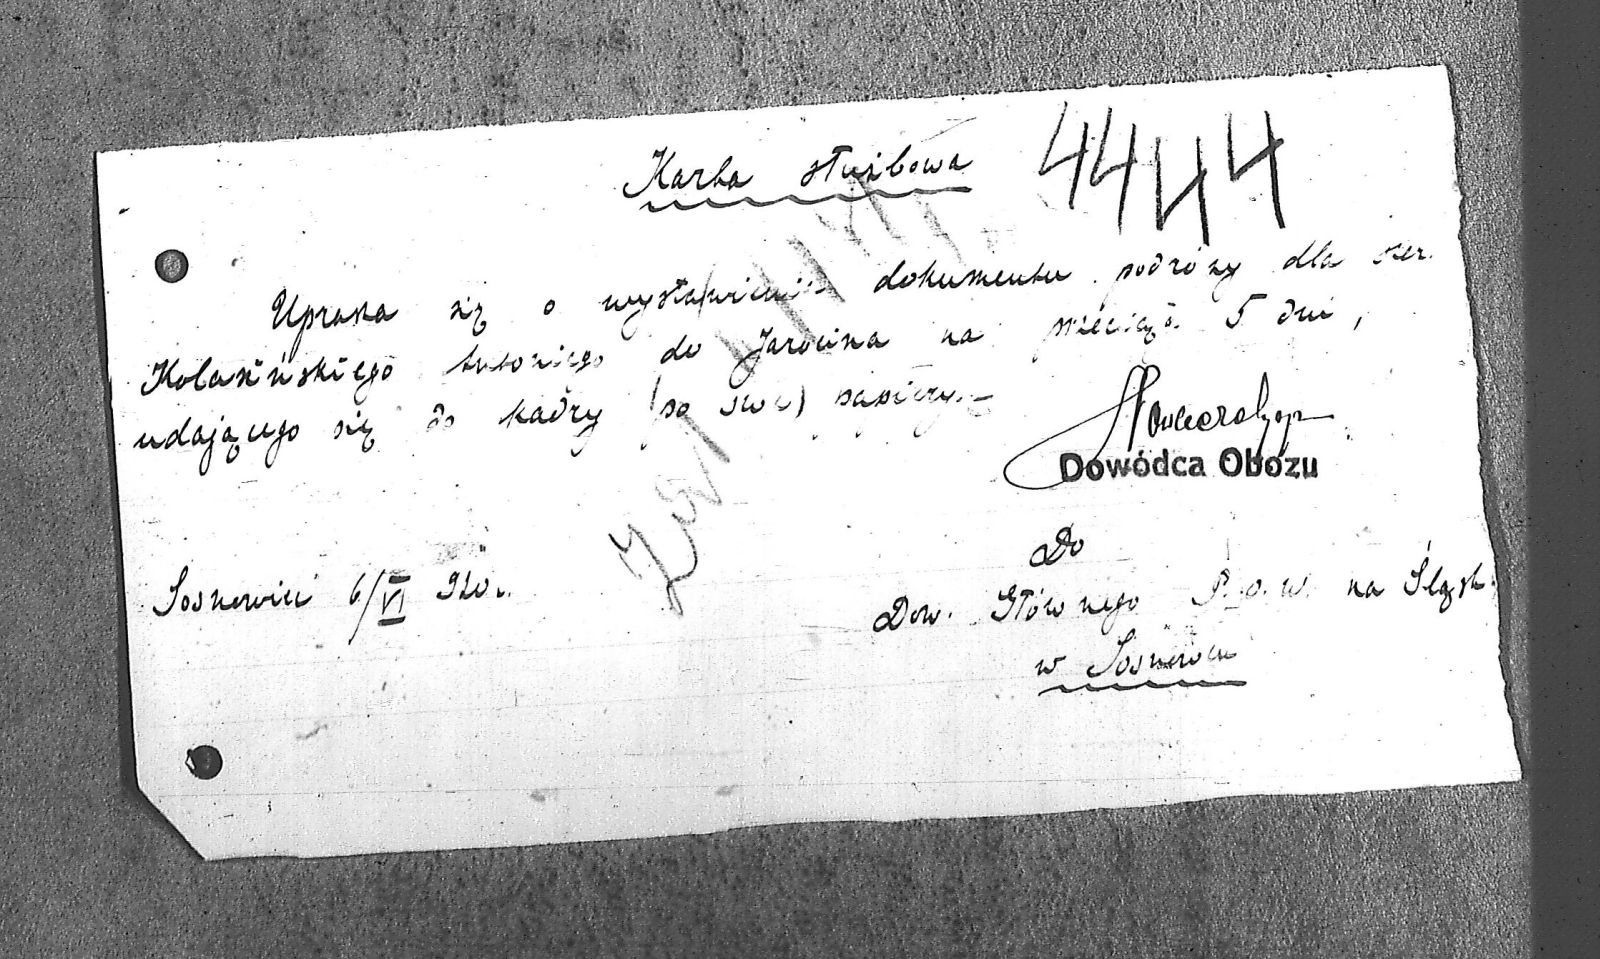 Kartka służbowa 4444
Uprasza się o wystawienie dokumentu podróży dla szer.
Kolasińskiego Antoniego do Jarocina na przeciąg 5 dni,
udającego się do kadry (po swe) papiery.-
Dowódca Obozu
Sosnowiec 6/VI 920 r.
Do
Dow. Głównego P.O.W. na Śląsk.
w Sosnowcu